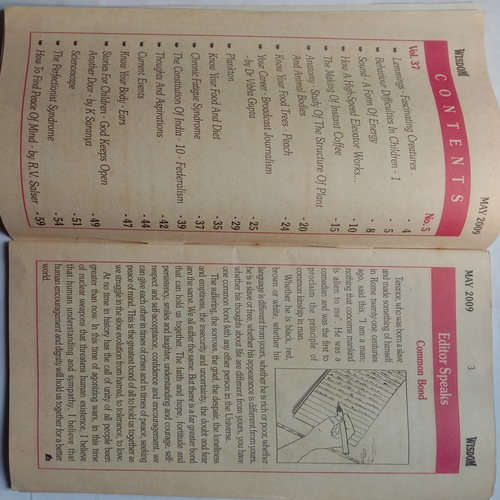 WISDOM
MAY 2009
CONTENTS
Vol. 37
No. 5
Lemmings - Fascinating Creatures - 4
Behaviour Difficulties In Children - 1 - 5
Sound - A Form Of Energy - 8
How A High-Speed Elevator Works... - 10
The Making Of Instant Coffee - 15
Anatomy - Study Of The Structure Of Plant
And Animal Bodies - 20
Know Your Food Trees - Peach - 24
Your Career - Broadcast Journalism
- by Dr Vibha Gupta - 25
Plankton - 29
Know Your Food And Diet - 35
Chronic Fatigue Syndrome - 37
The Constitution Of India - 10 - Federalism - 39
Thoughts And Aspirations - 42
Current Events - 44
Know Your Body - Ears - 47
Stories For Children - God Keeps Open
Another Door - by K Suranya - 49
Sciencescape - 51
The Perfectionist Syndrome - 54
How To Find Peace Of Mind - by R.V. Salser - 59
MAY 2009
3
WISDOM
Editor Speaks
Common Bond
Terence, who was born a slave
and made something of himself
in Rome twenty-one centuries
ago, said this, 'I am a man;
nothing that concerns mankind
is alien to me". He was a
comedian and was the first to
proclaim the principle of
common kinship in man.
Whether he is black, red,
brown or white, whether his
language is different from yours, whether he is rich or poor, whether
he is a slave or free, whether his appearance is different from yours,
whether his thoughts of life are different from yours, you have
one common bond with any other person in the Universe.
The suffering, the sorrows, the grief, the despair, the loneliness
and emptiness, the insecurity and uncertainty, the doubt and fear
are the same. We all suffer the same. But there is a far greater bond
that can hold us together. The faith and hope, fortitude and
persistency, smiles and laughter, understanding and courage, self-
respect and self-confidence, guidance and encouragement, we
can give each other in times of crises and in times of peace, seeking
peace of mind. This is the greatest bond of all to hold us together as
we struggle in the slow evolution from hatred, to tolerance, to love.
At no time in history has the call of unity of all people been
greater than now. In this time of agonizing wars, in this time
of nuclear weapons that threatens human existence, I believe
that human understanding and sympathy, I believe that
human encouragement and dignity will hold us together for a better
world.